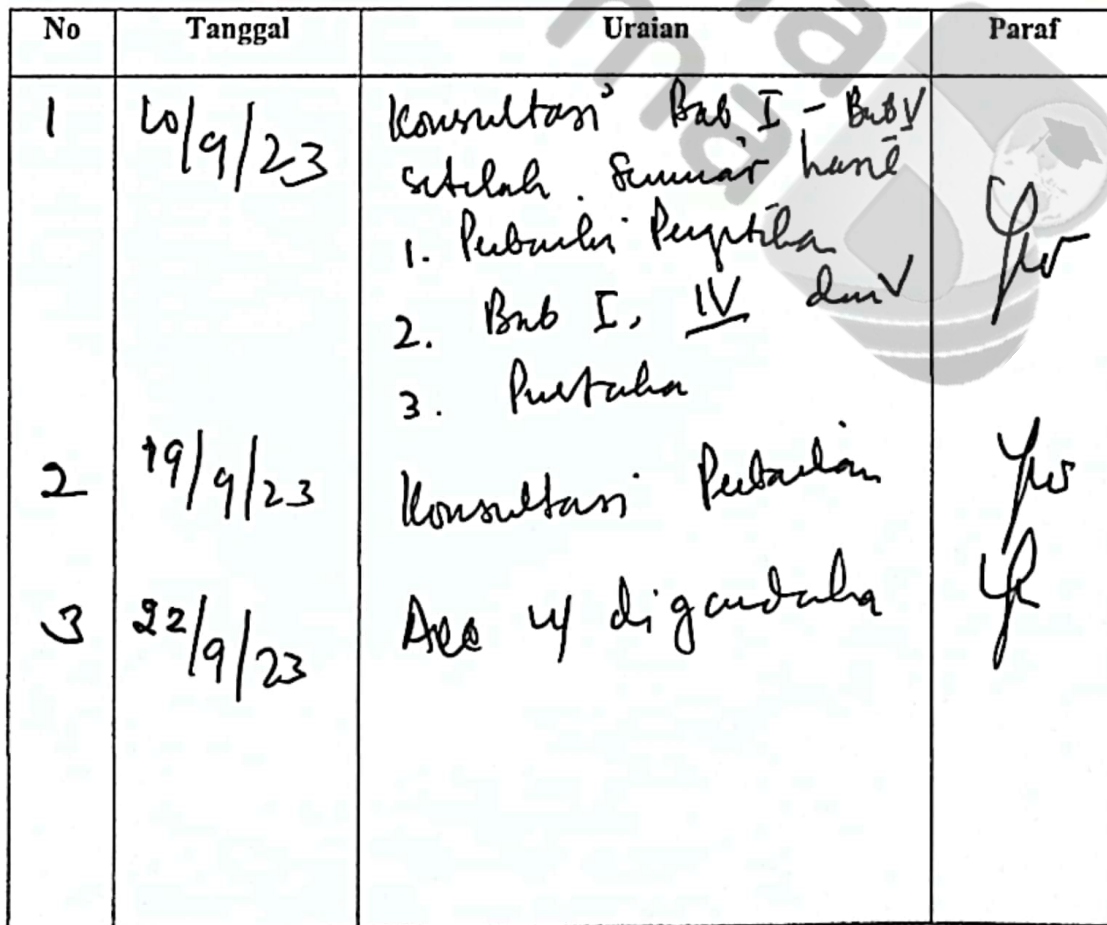 No Tanggal Uraian Paraf
1 10/9/23 Konsultasi Bab I - Bab V
setelah Seminar hasil
1. Perbaiki Pengetikan
2. Bab I, IV dan V
3. Pustaka
2 19/9/23 Konsultasi Perbaikan
3 22/9/23 Acc u/ digandakan